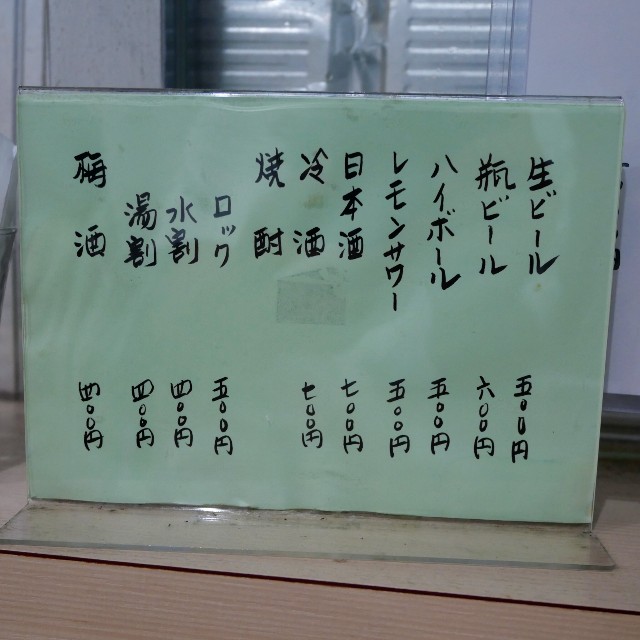 生ビール 五〇〇円
瓶ビール 六〇〇円
ハイボール 五〇〇円
レモンサワー 五〇〇円
日本酒 七〇〇円
冷酒 七〇〇円
焼酎
ロック 五〇〇円
水割 四〇〇円
湯割 四〇〇円
梅酒 四〇〇円